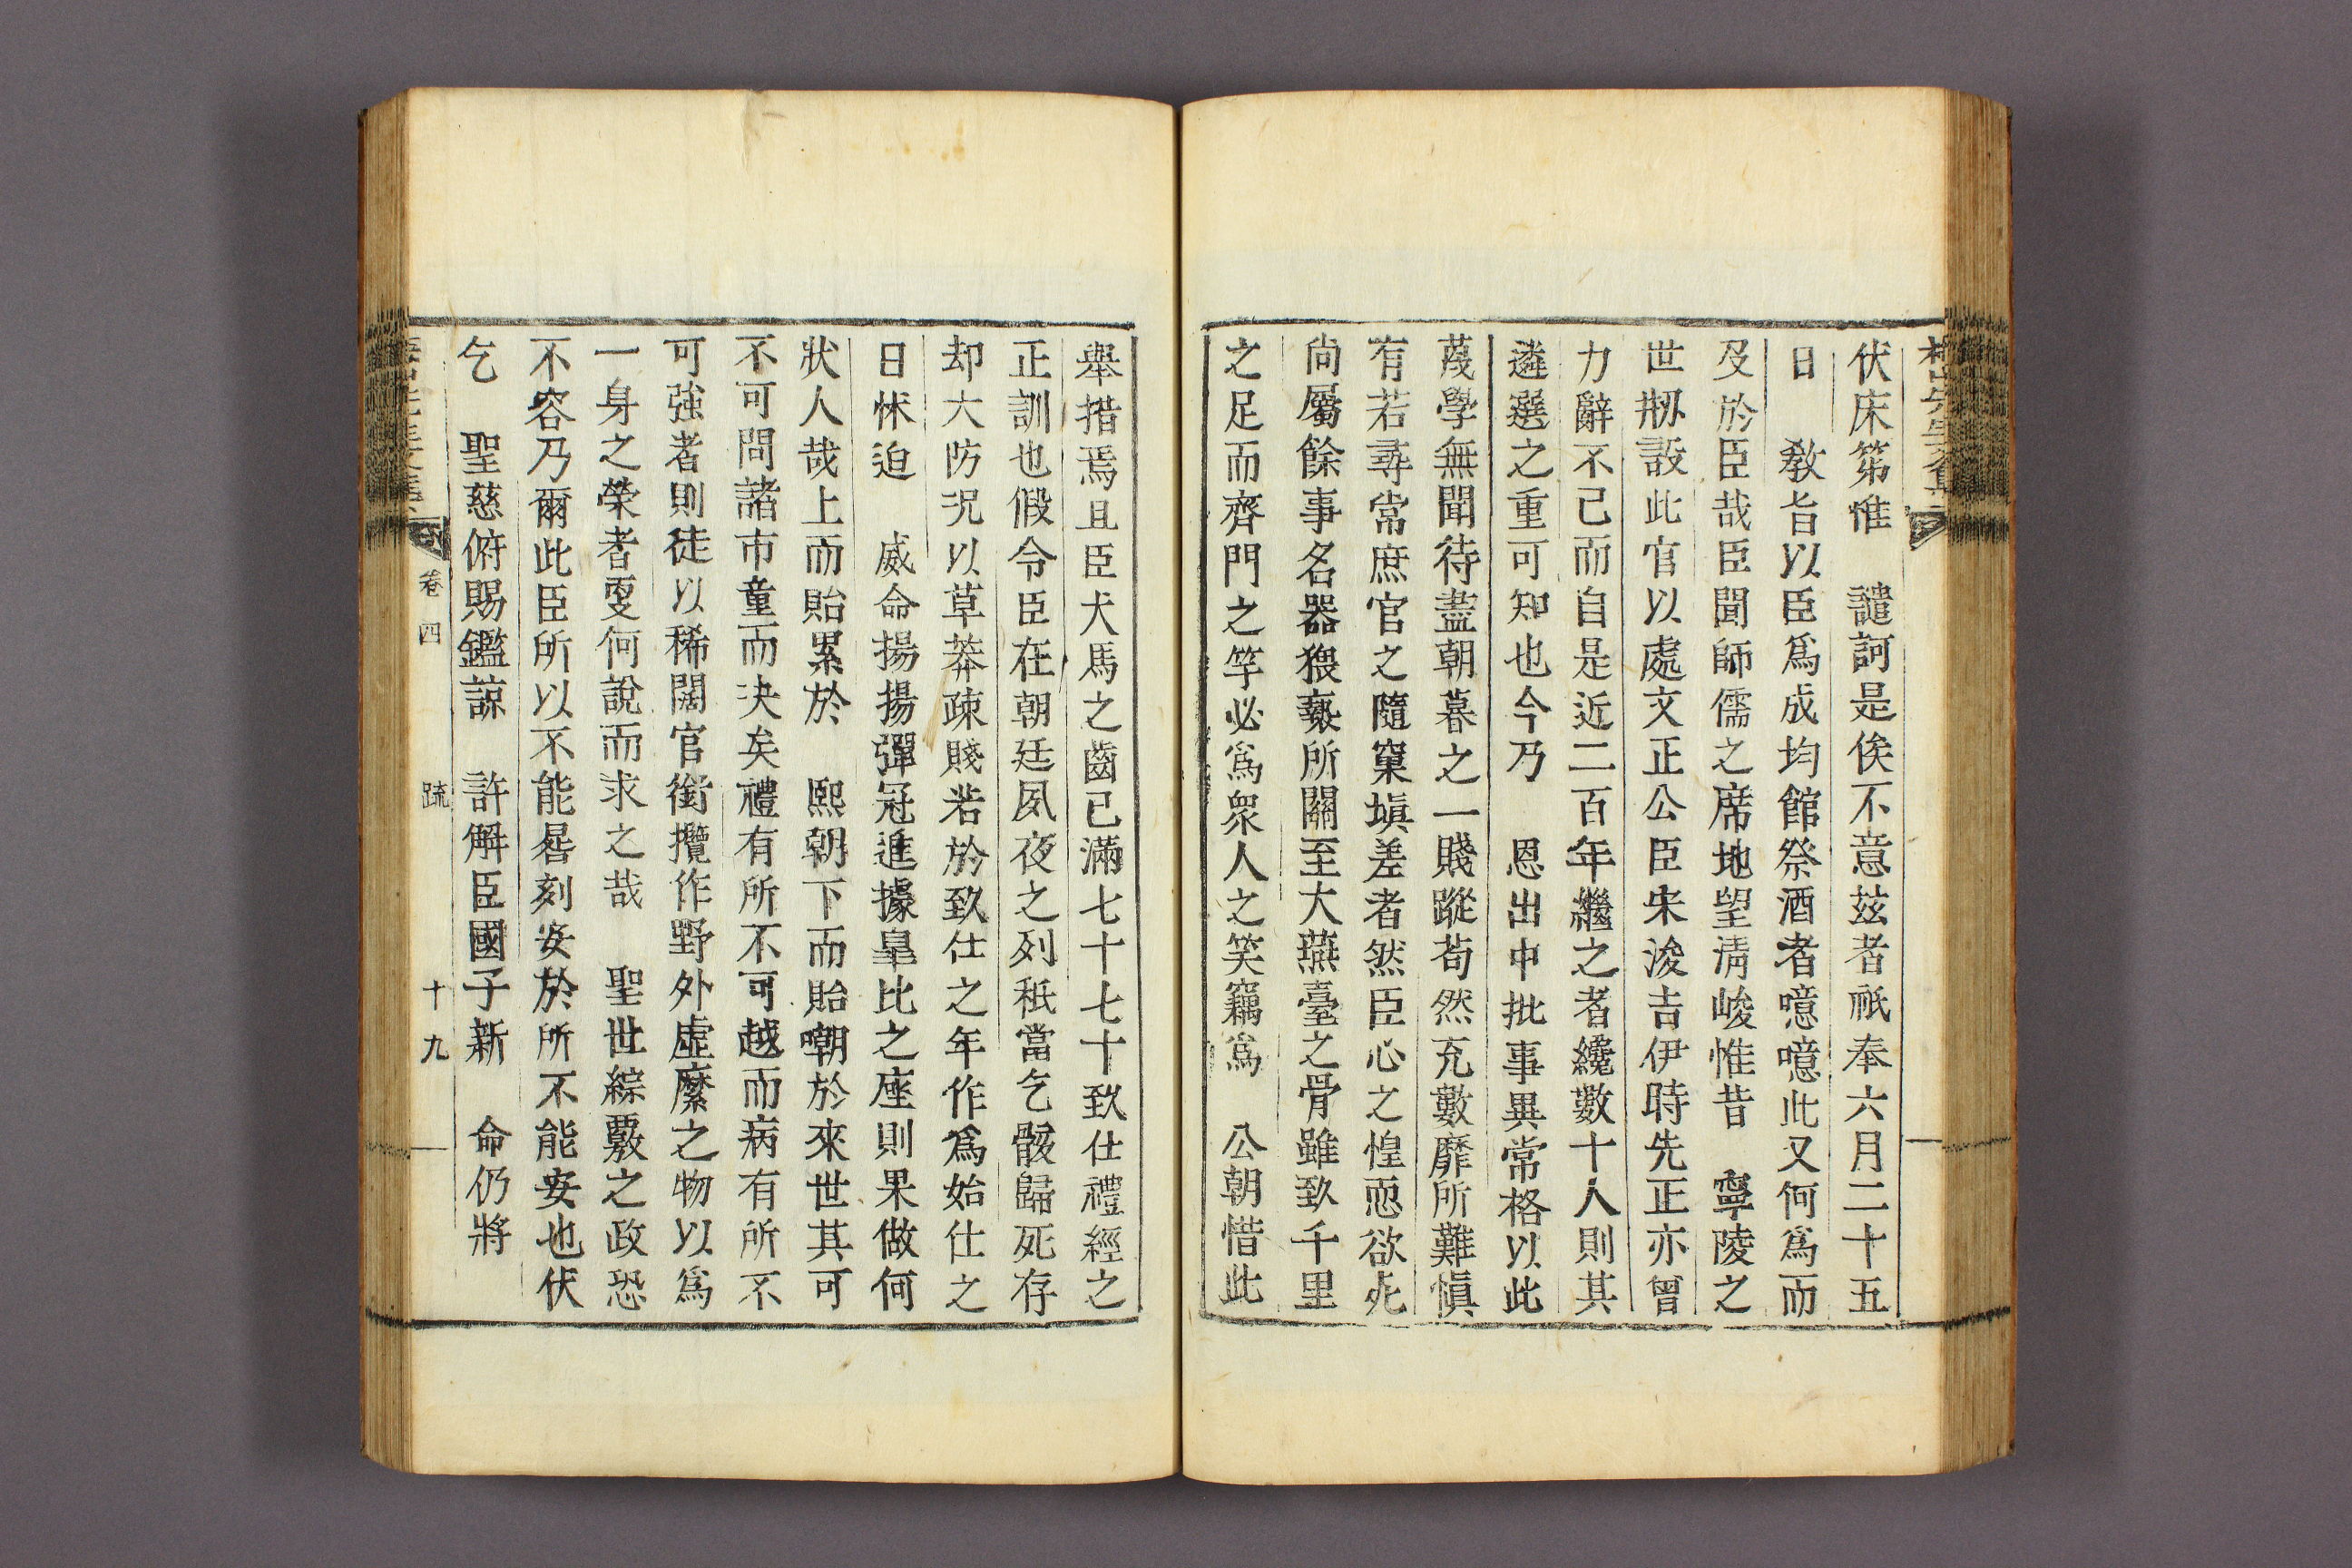 伏床第惟 譴訶是俟不意玆者祇奉六月二十五
日 敎旨以臣爲成均館祭酒者噫噫此又何爲而
及於臣哉臣聞師儒之席地望淸峻惟昔 寧陵之
世刱設此官以處文正公臣宋浚吉伊時先正亦曾
力辭不已而自是近二百年繼之者纔數十人則其
遴選之重可知也今乃 恩出中批事異常格以此
蔑學無聞待盡朝暮之一賤蹤苟然充數靡所難愼
有若尋常庶官之隨窠塡差者然臣心之惶恧欲死
尙屬餘事名器猥褻所關至大燕臺之骨雖致千里
之足而齊門之竽必爲衆人之笑竊爲 公朝惜此
擧措焉且臣犬馬之齒已滿七十七十致仕禮經之
正訓也假令臣在朝廷夙夜之列秖當乞骸歸死存
却大防况以草莽疎賤若於致仕之年作爲始仕之
日怵迫 威命揚揚彈冠進據臯比之座則果做何
狀人哉上而貽累於 熙朝下而貽嘲於來世其可
不可問諸市童而决矣禮有所不可越而病有所不
可強者則徒以稀闊官銜攬作野外虛縻之物以爲
一身之榮者耎何說而求之哉 聖世綜覈之政恐
不容乃爾此臣所以不能晷刻妥於所不能安也伏
乞 聖慈俯賜鑑諒 許解臣國子新 命仍將
卷四 疏 十九